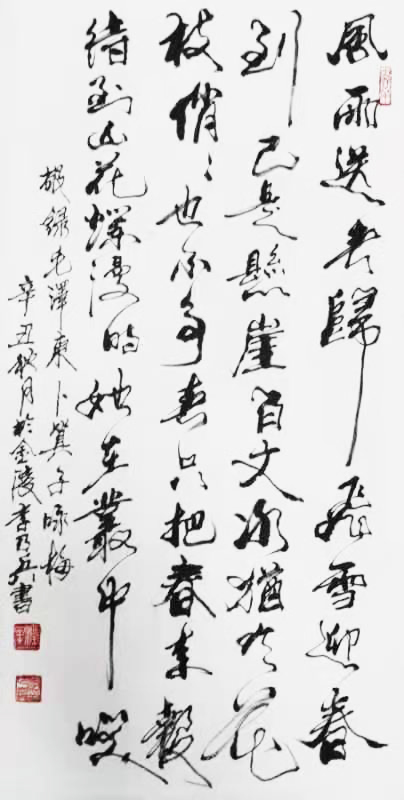 風雨送春歸飛雪迎春
到已是懸崖百丈冰猶有花
枝俏〻也不争春只把春来報
待到山花爛漫时她在叢中咲
敬録毛澤東卜算子咏梅
辛丑秋月於金陵李乃兵書